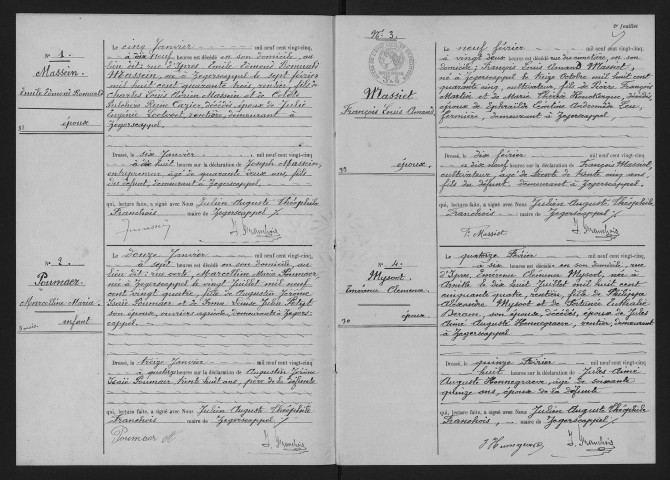 N° 1
Massein
Emile Edmond Romuald
époux
81
Le cinq Janvier mil neuf cent vingt-cinq,
à dix neuf heures est décédé en son domicile au
lieu dit: rue d'Ypres Emile Edmond Romuald
Massein, né à Zegerscappel le sept février
mil huit cent quarante trois, rentier, fils de
Charles Louis Massein et de
décédés, époux de Julie
Eugénie rentière, demeurant à
Zegerscappel.
Dressé, le six Janvier mil neuf cent vingt-cinq,
à heures sur la déclaration de Joseph Massein,
entrepreneur âgé de quarante deux ans, fils
du défunt, demeurant à Zegerscappel.
qui, lecture faite, a signé avec Nous Julien Auguste Théophile
Franchois maire de Zegerscappel
J. Franchois
N° 2
Poumaer
Marcelline Maria
enfant
Le douze Janvier mil neuf cent vingt-cinq,
à sept heures est décédée en son domicile au
lieu dit: rue verte, Marcelline Maria Poumaer,
née à Zegerscappel le vingt Juillet mil neuf
cent vingt quatre, fille de Augustin Jérôme
Isaïe Poumaer et de
son épouse, ouvriers agricoles, demeurant à Zegers-
cappel.
Dressé, le treize Janvier mil neuf cent vingt-cinq,
à quatorze heures sur la déclaration de Augustin Jérôme
Isaïe Poumaer trente huit ans, père de la défunte
qui, lecture faite, a signé avec Nous Julien Auguste Théophile
Franchois maire de Zegerscappel
Poumaer
J. Franchois
2e feuillet
N° 3
Massiet
François Louis Amand
époux
Le neuf février mil neuf cent vingt-cinq,
à vingt deux heures est décédé rue du cimetière, en son
domicile, François Louis Amand Massiet,
né à Zegerscappel le treize Octobre mil huit cent
quarante cinq, cultivateur, fils de Pierre François
Martin et de Marie Thérèse décédés,
époux de
fermière, demeurant à
Zegerscappel.
Dressé, le dix février mil neuf cent vingt-cinq,
à dix heures sur la déclaration de François Massiet,
cultivateur, âgé de trente cinq ans,
fils du défunt, demeurant à Zegerscappel.
qui, lecture faite, a signé avec Nous Julien Auguste Théophile
Franchois maire de Zegerscappel
F. Massiet
J. Franchois
N° 4
Clemence
épouse
Le quatorze Février mil neuf cent vingt-cinq,
à six heures est décédée en son domicile, rue
d'Ypres, Clémence née à
le dix huit Juillet mil huit cent
cinquante quatre, rentière, fille de Philippe
Alexandre et de
son épouse, décédés, épouse de Jules
Aimé Auguste rentier, demeurant
à Zegerscappel.
Dressé, le quinze Février mil neuf cent vingt-cinq,
à huit heures sur la déclaration de Jules Aimé
Auguste âgé de soixante
quinze ans, époux de la défunte
qui, lecture faite, a signé avec Nous Julien Auguste Théophile
Franchois maire de Zegerscappel
J. Franchois